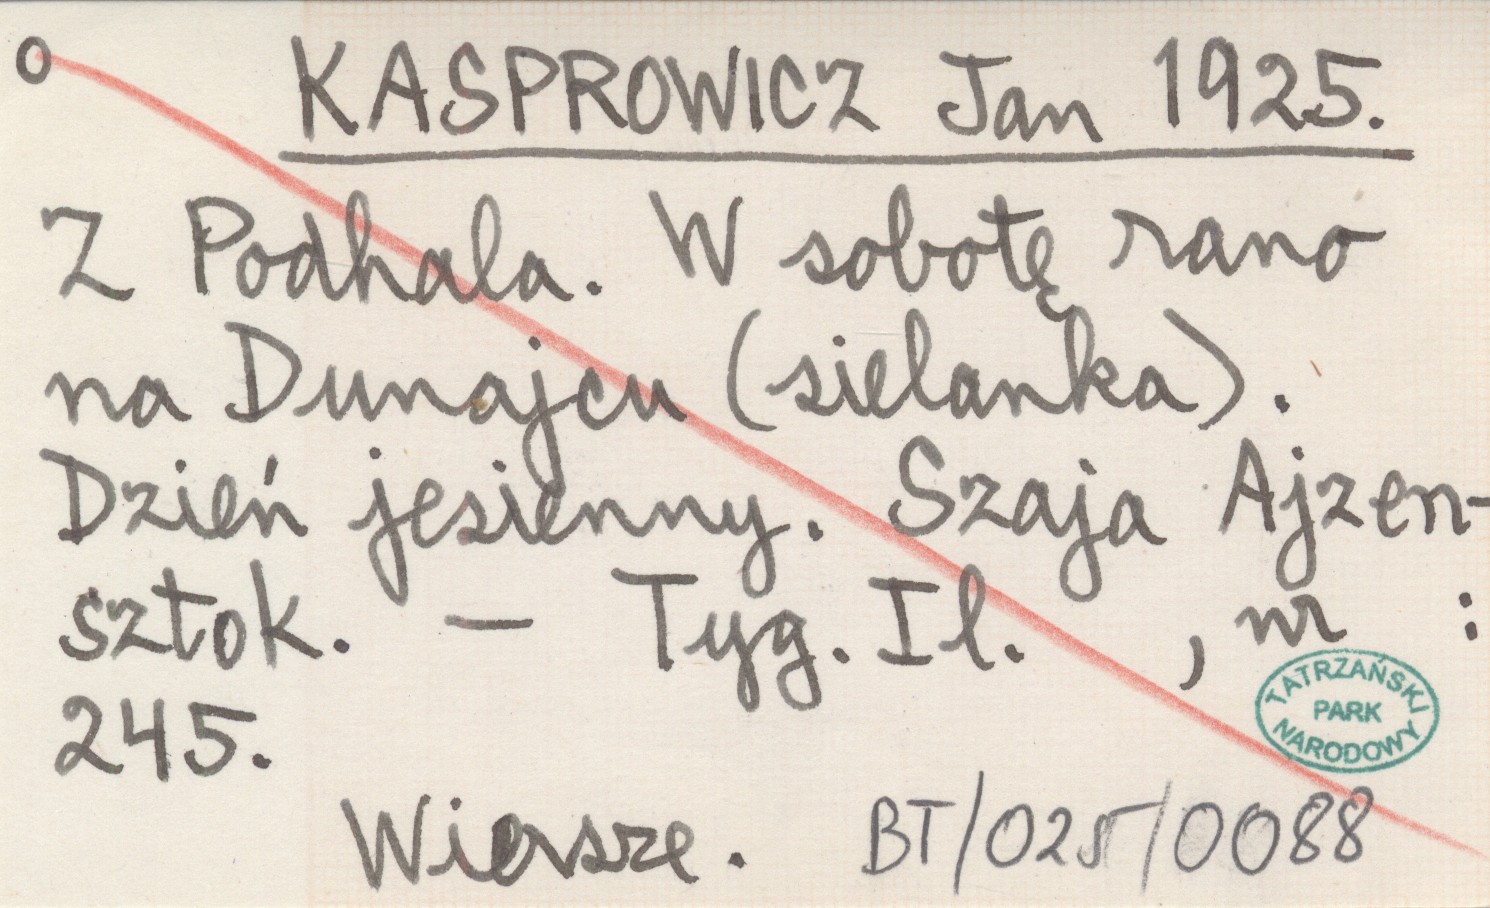 o KASPROWICZ Jan 1925.
Z Podhala. W sobotę rano
na Dunajcu (sielanka).
Dzień jesienny. Szaja Ajzen-
sztok. — Tyg. Il. , nr :
245.
TATRZAŃSKI
PARK
NARODOWY
Wiersze. BT/025/0088